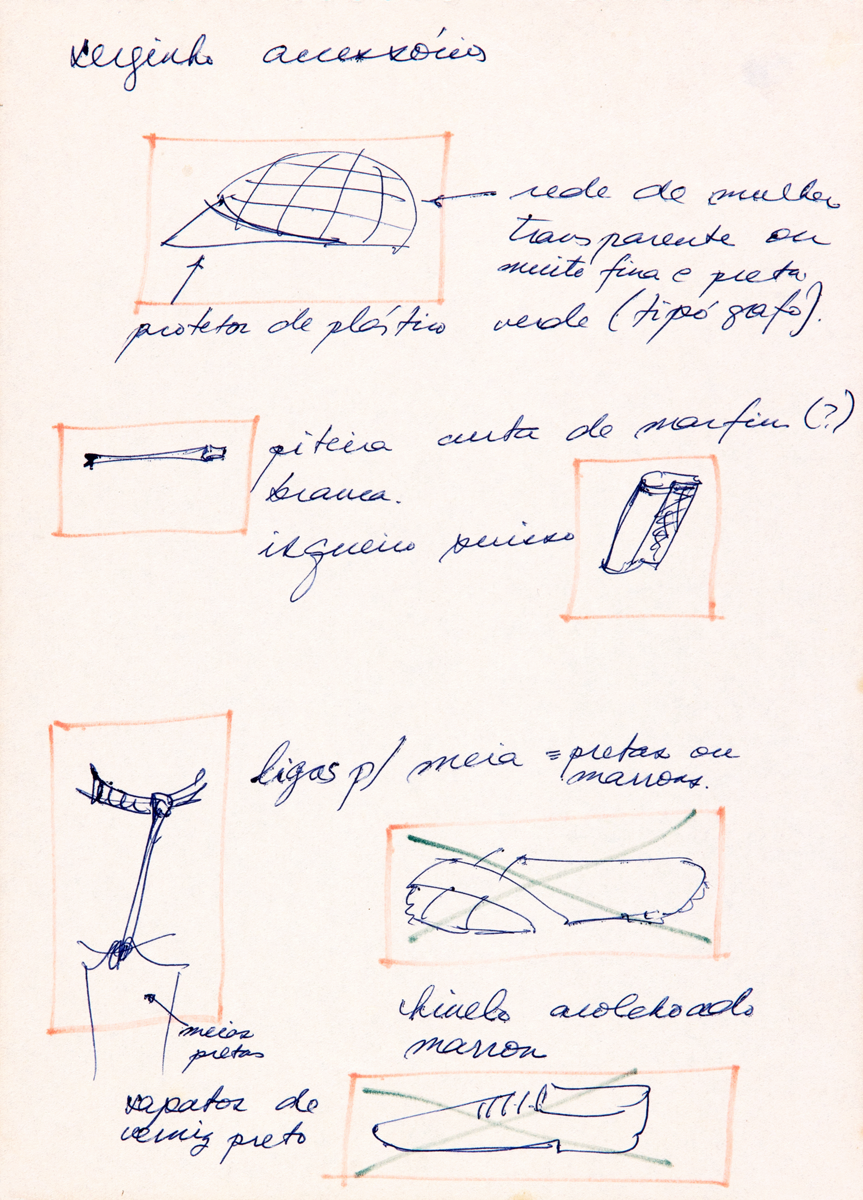 serginho acessórios
rede de mulher
transparente ou
muito fina e preta
protetor de plástico verde (tipógrafo).
piteira curta de marfim (?)
branca.
isqueiro suisso
ligas p/ meia = pretas ou
marrons.
chinelo acolchoado
marron
meias
pretas
sapatos de
verniz preto